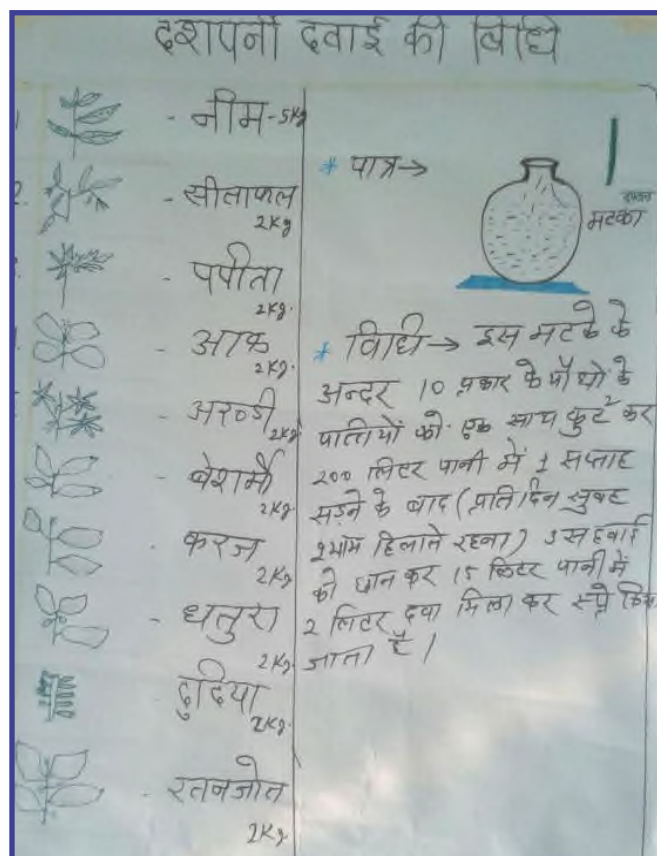 दशपर्नी दवाई की विधि
- नीम - 5Kg
- सीताफल
2Kg
- पपीता
2Kg.
- आक
2Kg.
- अरण्डी
2Kg
- बेशर्म
2Kg
- करज
2Kg
- धतुरा
2Kg
दुदिया
2Kg.
- रतनजोत
2Kg
* पात्र →
मटका
* विधि → इस मटके के
अन्दर 10 प्रकार के पौधो के
पात्तियों को एक साथ कुट कर
200 लिटर पानी में 1 सप्ताह
सड़ने के बाद (प्रतिदिन सुबह
शाम हिलाते रहना) इस दवाई
को छान कर 15 लिटर पानी में
2 लिटर दवा मिला कर स्प्रे किया
जाता है।